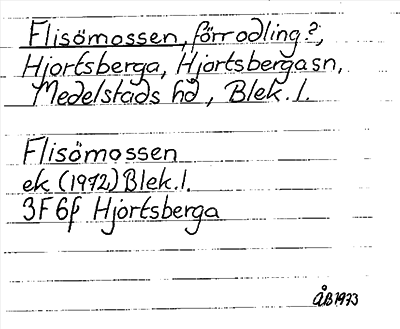 Flisömossen, förrodling?,
Hjortsberga, Hjortsbergasn,
Medelstads hd, Blek. l.
Flisömossen
ek (1972) Blek. l.
3F6f Hjortsberga
ÅB1973